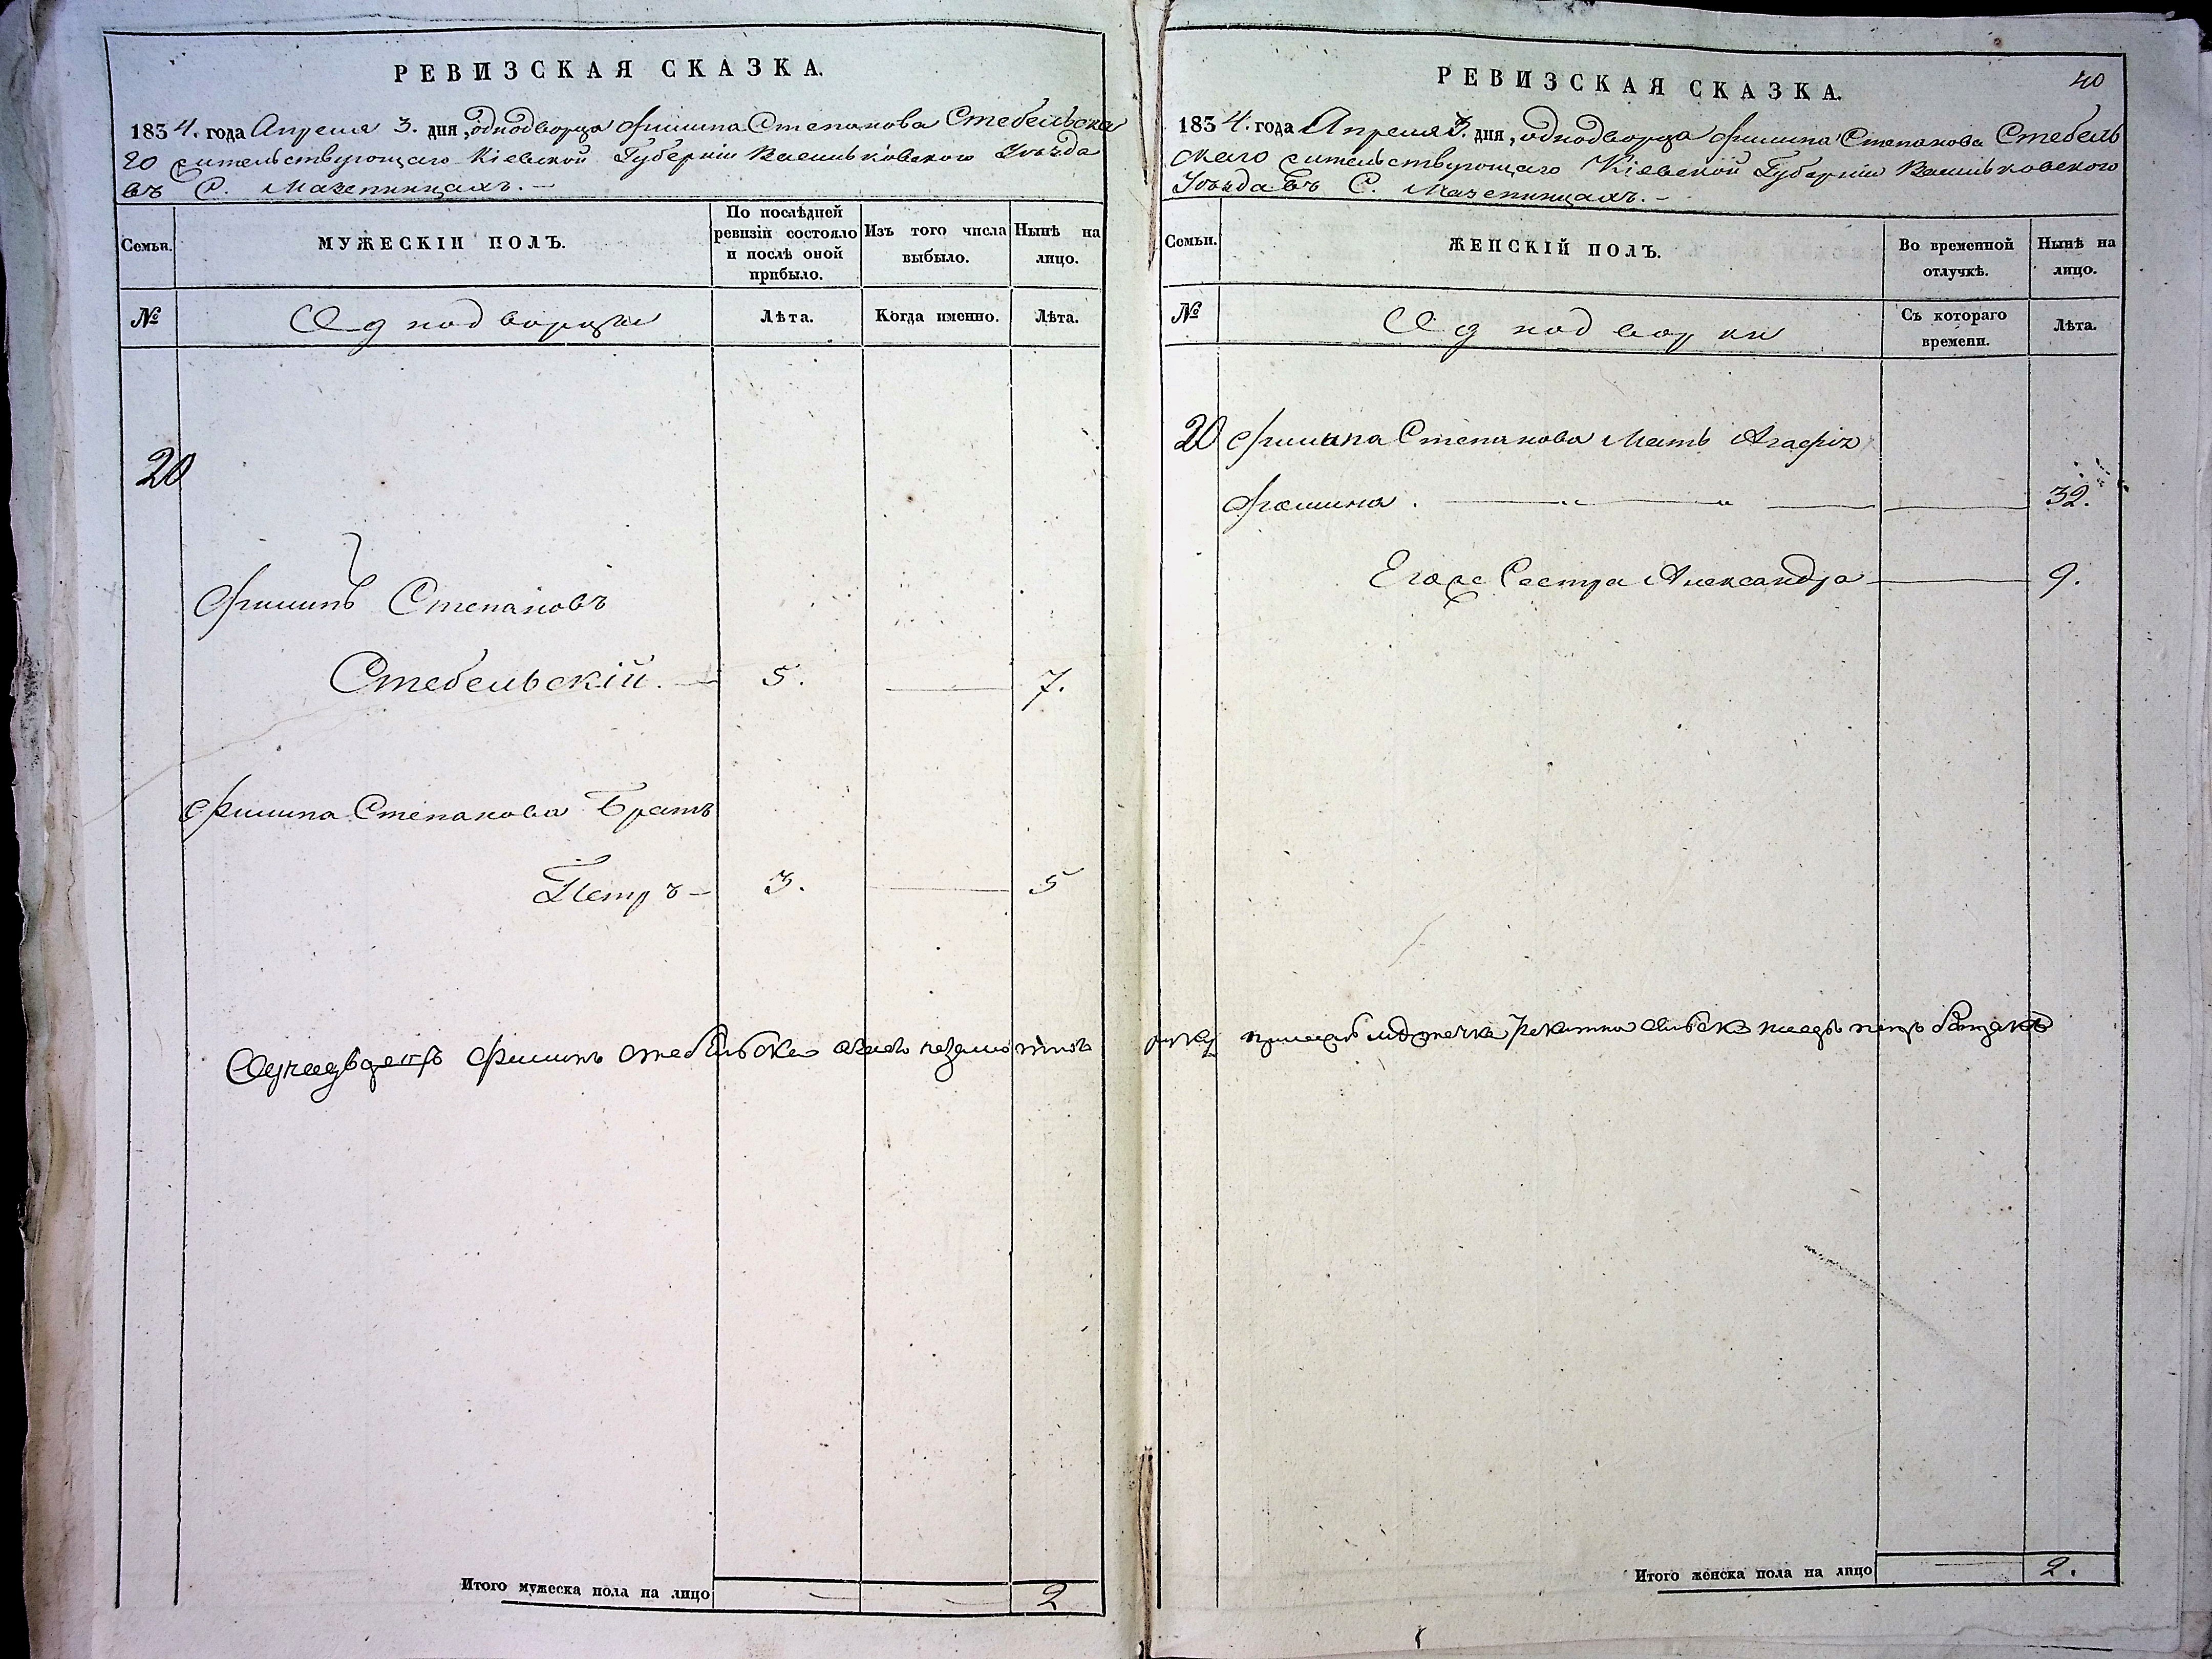 РЕВИЗСКАЯ СКАЗКА.
1834. года Апреля 3. дня, однодворца Филипа Степанова Стебельска
го жительствующаго Кіевской Губерніи Васильковского Уѣзда
въ С. Мазепинцахъ. —
Семьи.
МУЖЕСКІЙ ПОЛЪ.
По послѣдней
ревизіи состояло
и послѣ оной
прибыло.
Изъ того числа
выбыло.
Нынѣ на
лицо.
№
Однодворцы
Лѣта.
Когда именно.
Лѣта.
20
Филипъ Степановъ
Стебельскій. — 5. — 7.
Филипа Степанова Братъ
Петръ — 3. — 5
Филипъ
Итого мужеска пола на лицо — — 2
РЕВИЗСКАЯ СКАЗКА.
40
1834. года Апреля 3. дня, однодворца Филипа Степанова Стебель
скаго жительствующаго Кіевской Губерніи Васильковского
Уѣзда въ С. Мазепинцахъ. —
Семьи.
ЖЕНСКІЙ ПОЛЪ.
Во временной
отлучкѣ.
Нынѣ на
лицо.
№
Однодворки
Съ котораго
времени.
Лѣта.
20 Филипа Степанова Мать Агафія
— 32.
Его Сестра Александра — 9.
Итого женска пола на лицо — 2.